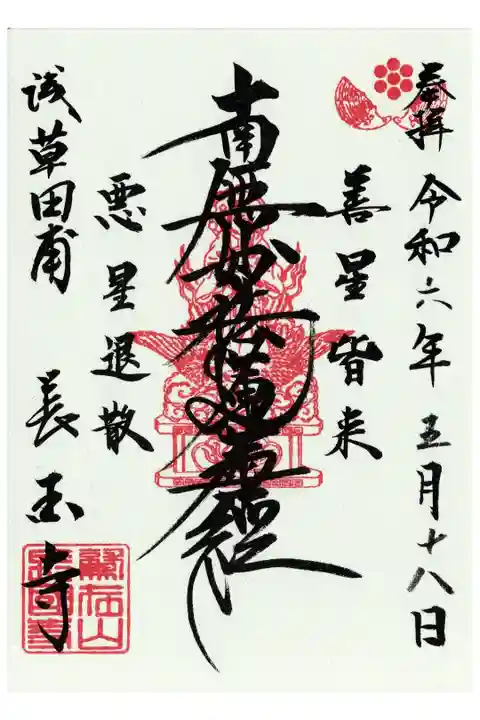 奉拝 令和六年五月十八日
善星皆来
南無妙法蓮華經
悪星退散
浅草田甫 長国寺
鷲在山
長國寺